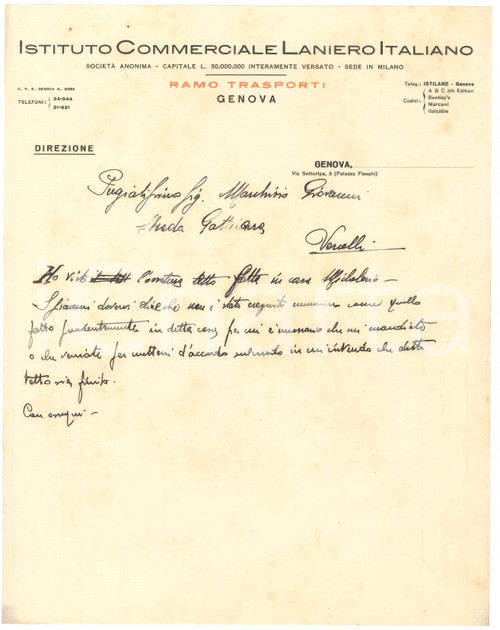 ISTITUTO COMMERCIALE LANIERO ITALIANO
SOCIETÀ ANONIMA - CAPITALE L. 30.000.000 INTERAMENTE VERSATO - SEDE IN MILANO
RAMO TRASPORTI
GENOVA
C. P. E. GENOVA N.
TELEFONI: 24-644
21-821
Teleg.: ISTILANE - Genova
Codici: A B C 5th Edition
Bentley's
Marconi
Italcable
DIREZIONE
GENOVA,
Via Sottoripa, 5 (Palazzo Fieschi)
Pregiatissimo Sig. Marchisio Giovanni
Strada Gattinara
Vercelli
Ho visto tetto fatto in casa
Spiacemi dovervi dire che non è stato eseguito come quello
fatto precedentemente in detta casa, per cui è necessario che mi mandiate
o che veniate per metterci d'accordo sul modo in cui intendo che detto
tetto sia finito.
Con ossequi -